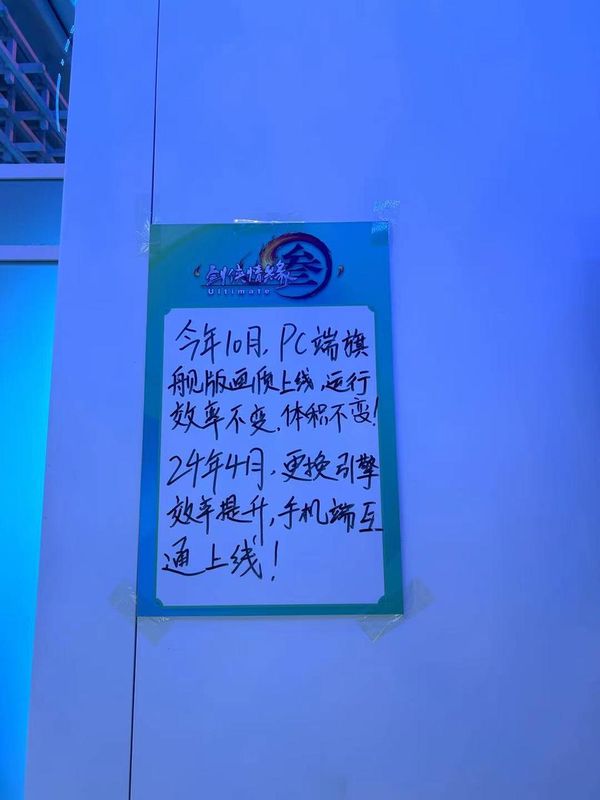 剑侠情缘叁
Ultimate
今年10月，PC端旗
舰版画质上线，运行
效率不变，体积不变！
24年4月，更换引擎
效率提升，手机端互
通上线！